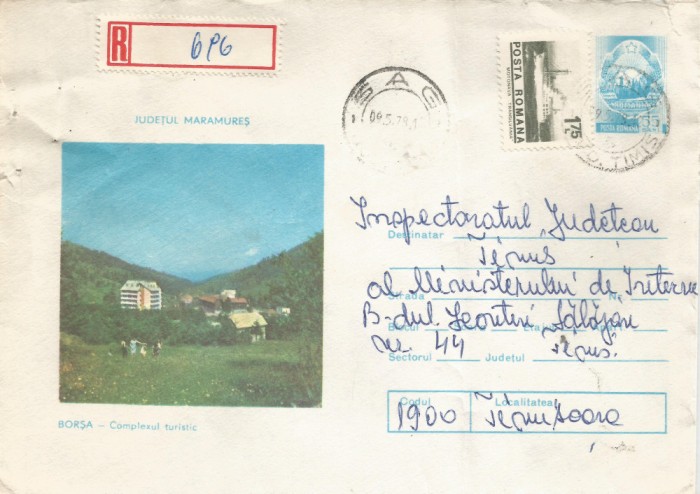 R 696
JUDEȚUL MARAMUREȘ
BORȘA – Complexul turistic
ȘAG
09.5.79
POSTA ROMANA
1 75 L
ROMANIA
POSTA ROMANA 55 BANI
JUD. TIMIȘ
Inspectoratul Județean
Destinatar
Timis
al Ministerului de Interne
Strada Nr.
B-dul Leontin Sălăjan
Blocul Etaj
nr. 44 Timis.
Sectorul Județul
Codul Localitatea
1900 Timisoara